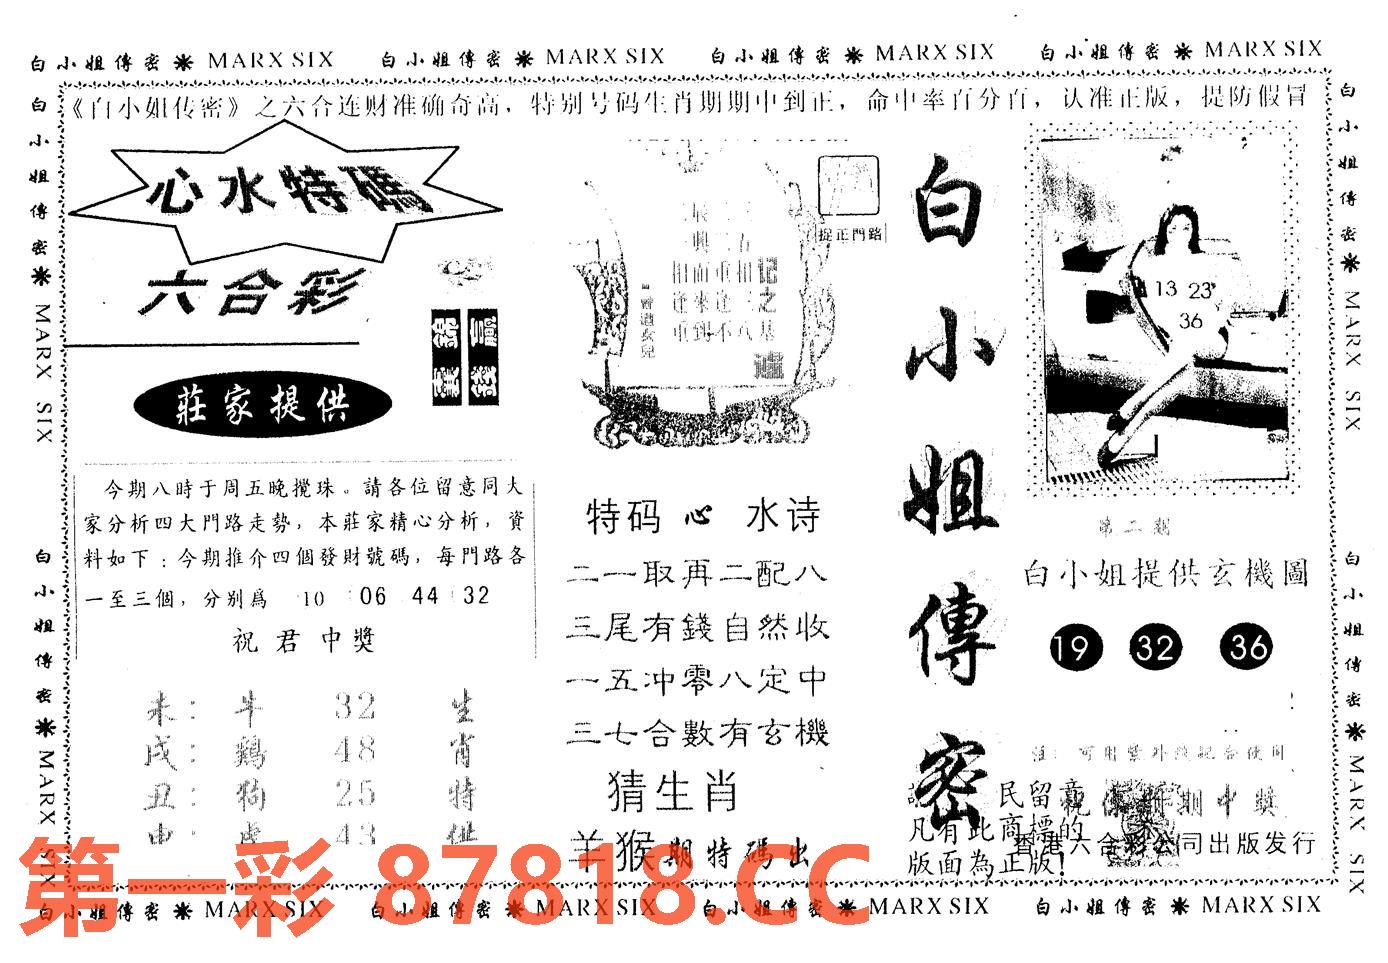 白小姐傳密 MARX SIX 白小姐傳密 MARX SIX 白小姐傳密 MARX SIX 白小姐傳密 MARX SIX
《白小姐传密》之六合连财准确奇高，特别号码生肖期期中到正，命中率百分百，认准正版，提防假冒
白小姐傳密 MARX SIX
白小姐傳密 MARX SIX
心水特碼
六合彩
莊家提供
今期八時于周五晚攪珠。請各位留意同大
家分析四大門路走勢，本莊家精心分析，資
料如下：今期推介四個發財號碼，每門路各
一至三個，分别爲 10 06 44 32
祝君中獎
未：牛 32 生
戌：鷄 48 肖
丑：狗 25 特
申：虎 43 供
捉正門路
记之
相三基
重逢不八
面來到
相逢重
曾道女兒
特码心水诗
二一取再二配八
三尾有錢自然收
一五冲零八定中
三七合數有玄機
猜生肖
羊猴期特碼出
白小姐傳密
民留意
凡有此商標的
版面為正版!
13 23
36
第二期
白小姐提供玄機圖
19 32 36
注：可用紫外线配合使用
祝你期期中獎
香港六合彩公司出版发行
白小姐傳密 MARX SIX
白小姐傳密 MARX SIX
第一彩 87818.CC
白小姐傳密 MARX SIX 白小姐傳密 MARX SIX 白小姐傳密 MARX SIX 白小姐傳密 MARX SIX